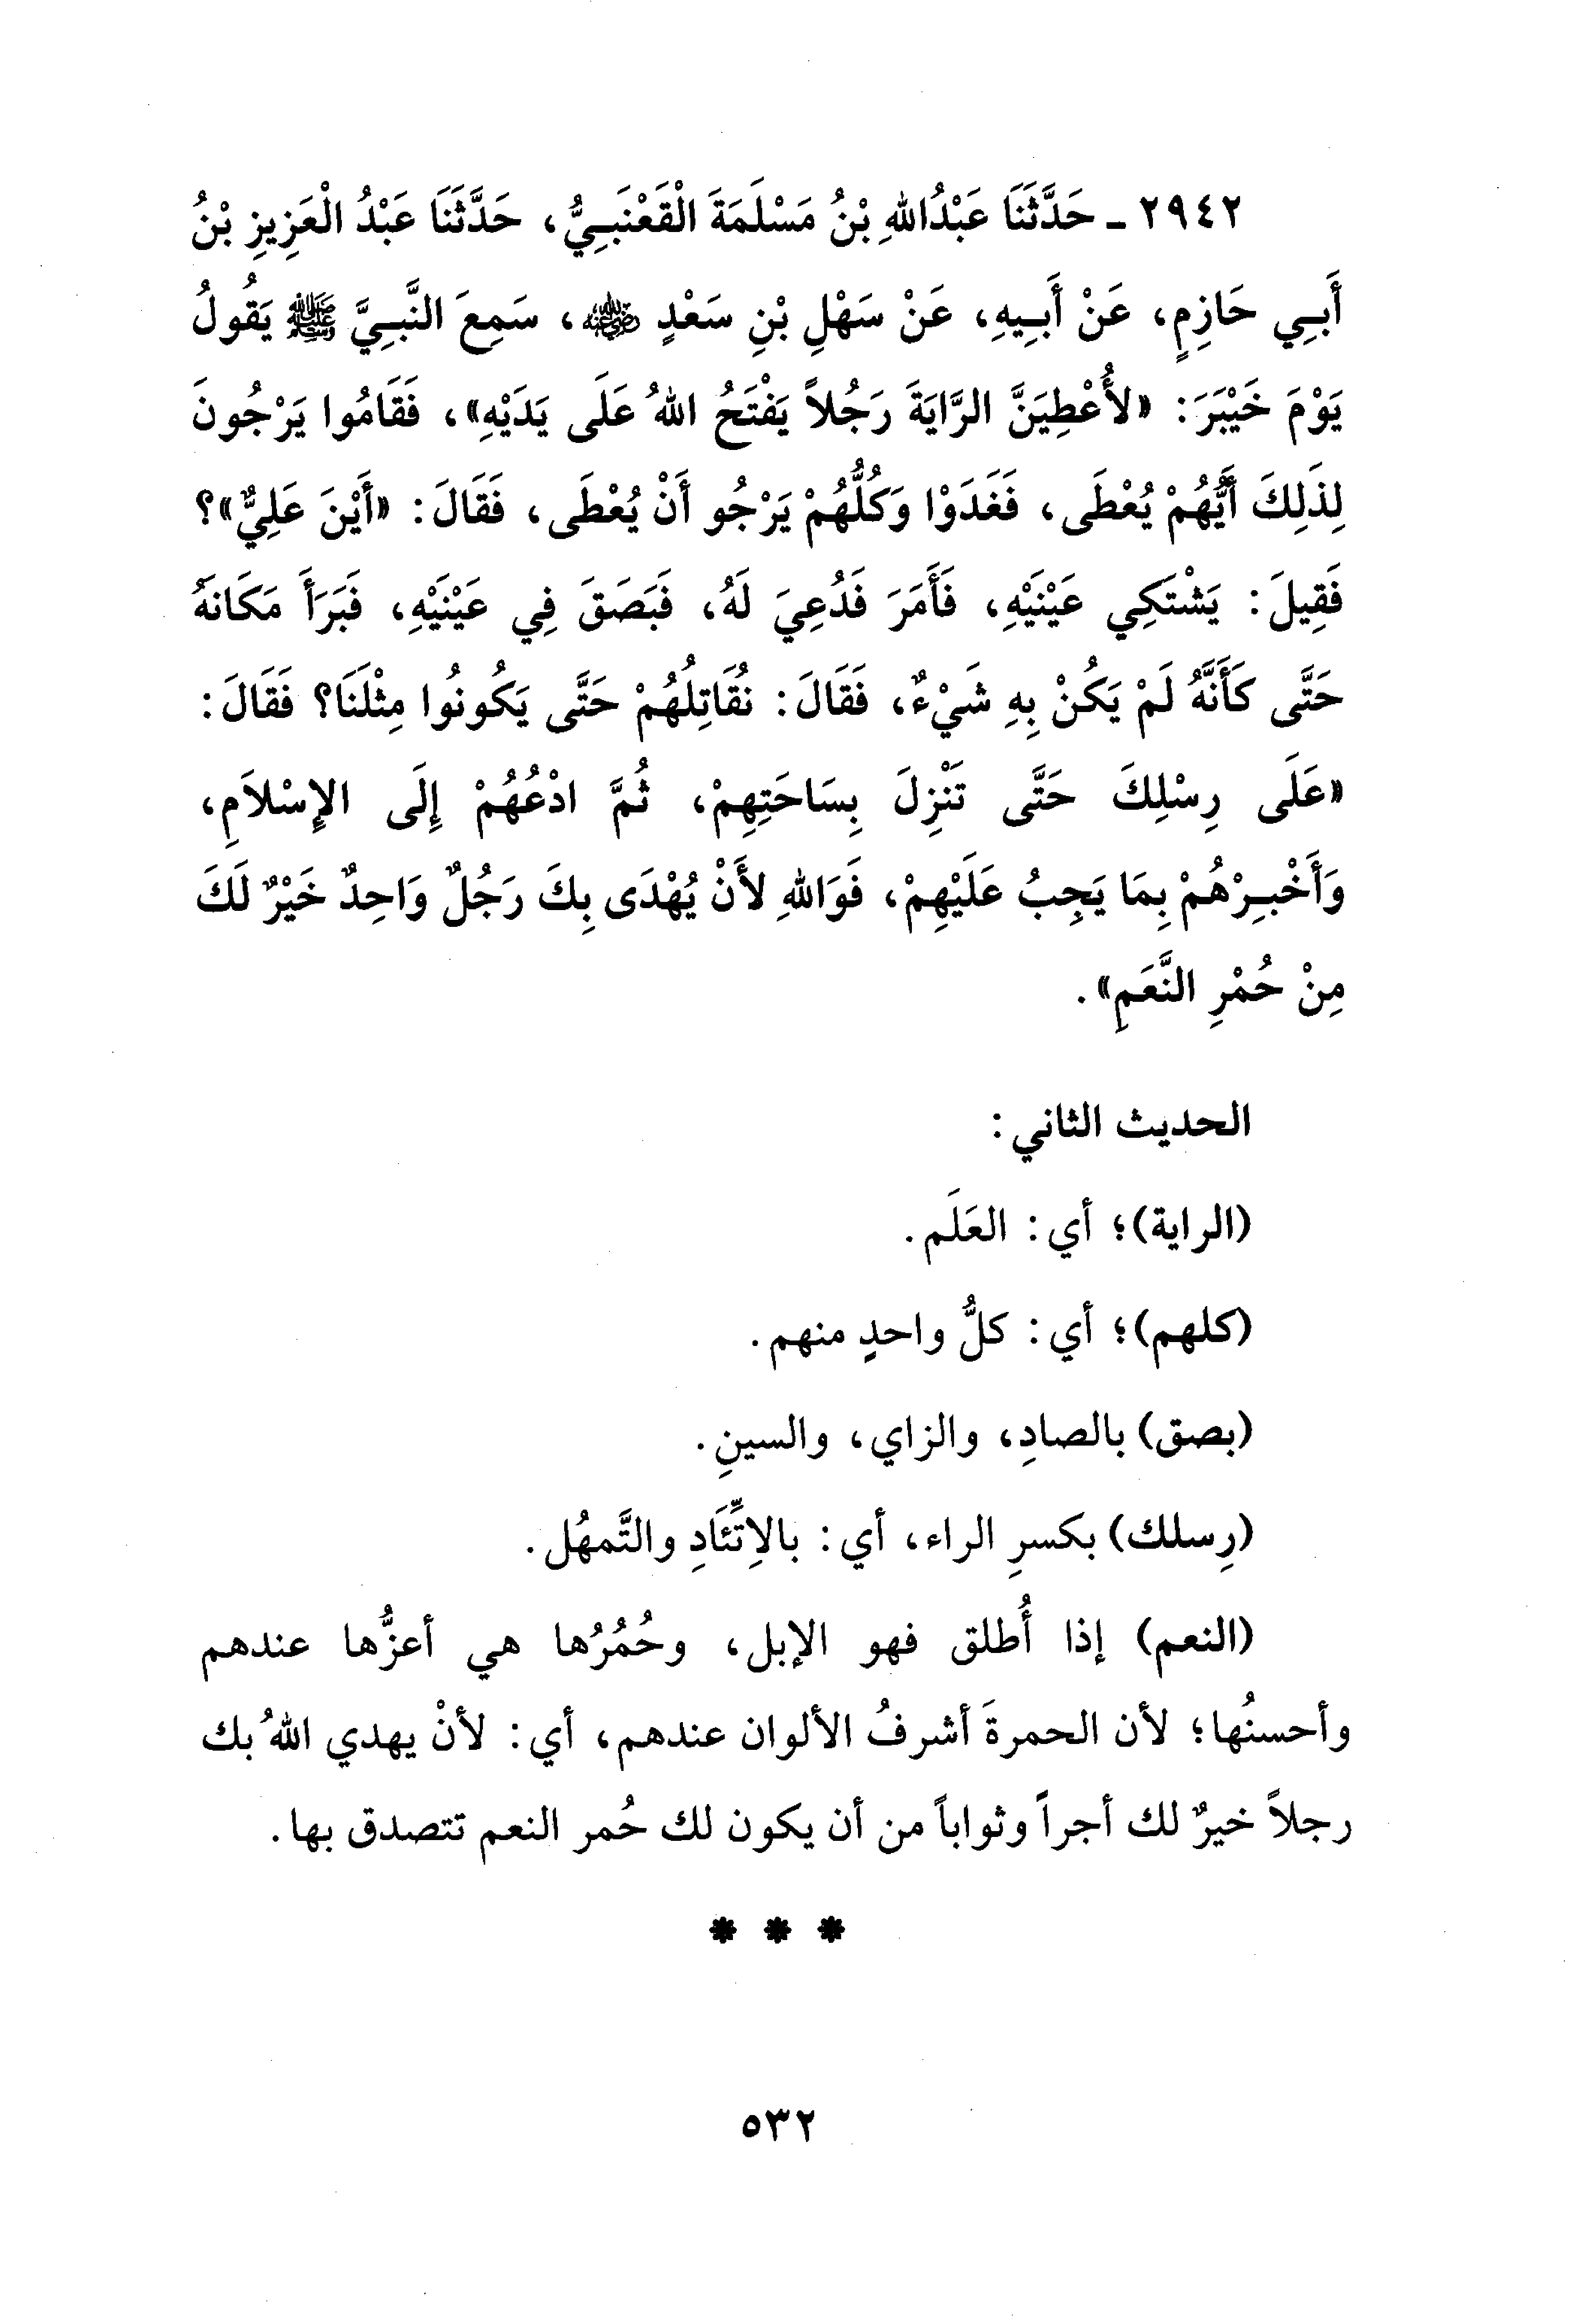 ٢٩٤٢ ـ حَدَّثَنَا عَبْدُاللهِ بْنُ مَسْلَمَةَ الْقَعْنَبِيُّ، حَدَّثَنَا عَبْدُ الْعَزِيزِ بْنُ
أَبِي حَازِمٍ، عَنْ أَبِيهِ، عَنْ سَهْلِ بْنِ سَعْدٍ ﵁، سَمِعَ النَّبِيَّ ﷺ يَقُولُ
يَوْمَ خَيْبَرَ: «لأُعْطِيَنَّ الرَّايَةَ رَجُلاً يَفْتَحُ اللهُ عَلَى يَدَيْهِ»، فَقَامُوا يَرْجُونَ
لِذَلِكَ أَيُّهُمْ يُعْطَى، فَغَدَوْا وَكُلُّهُمْ يَرْجُو أَنْ يُعْطَى، فَقَالَ: «أَيْنَ عَلِيٌّ»؟
فَقِيلَ: يَشْتَكِي عَيْنَيْهِ، فَأَمَرَ فَدُعِيَ لَهُ، فَبَصَقَ فِي عَيْنَيْهِ، فَبَرَأَ مَكَانَهُ
حَتَّى كَأَنَّهُ لَمْ يَكُنْ بِهِ شَيْءٌ، فَقَالَ: نُقَاتِلُهُمْ حَتَّى يَكُونُوا مِثْلَنَا؟ فَقَالَ:
«عَلَى رِسْلِكَ حَتَّى تَنْزِلَ بِسَاحَتِهِمْ، ثُمَّ ادْعُهُمْ إِلَى الإِسْلاَمِ،
وَأَخْبِرْهُمْ بِمَا يَجِبُ عَلَيْهِمْ، فَوَاللهِ لأَنْ يُهْدَى بِكَ رَجُلٌ وَاحِدٌ خَيْرٌ لَكَ
مِنْ حُمْرِ النَّعَمِ».
الحديث الثاني:
(الراية)؛ أي: العَلَم.
(كلهم)؛ أي: كلُّ واحدٍ منهم.
(بصق) بالصادِ، والزاي، والسينِ.
(رِسلك) بكسرِ الراء، أي: بالاِتِّئَادِ والتَّمهُل.
(النعم) إذا أُطلق فهو الإبل، وحُمُرُها هي أعزُّها عندهم
وأحسنُها؛ لأن الحمرةَ أشرفُ الألوان عندهم، أي: لأنْ يهدي اللهُ بك
رجلاً خيرٌ لك أجراً وثواباً من أن يكون لك حُمر النعم تتصدق بها.
* * *
٥٣٢